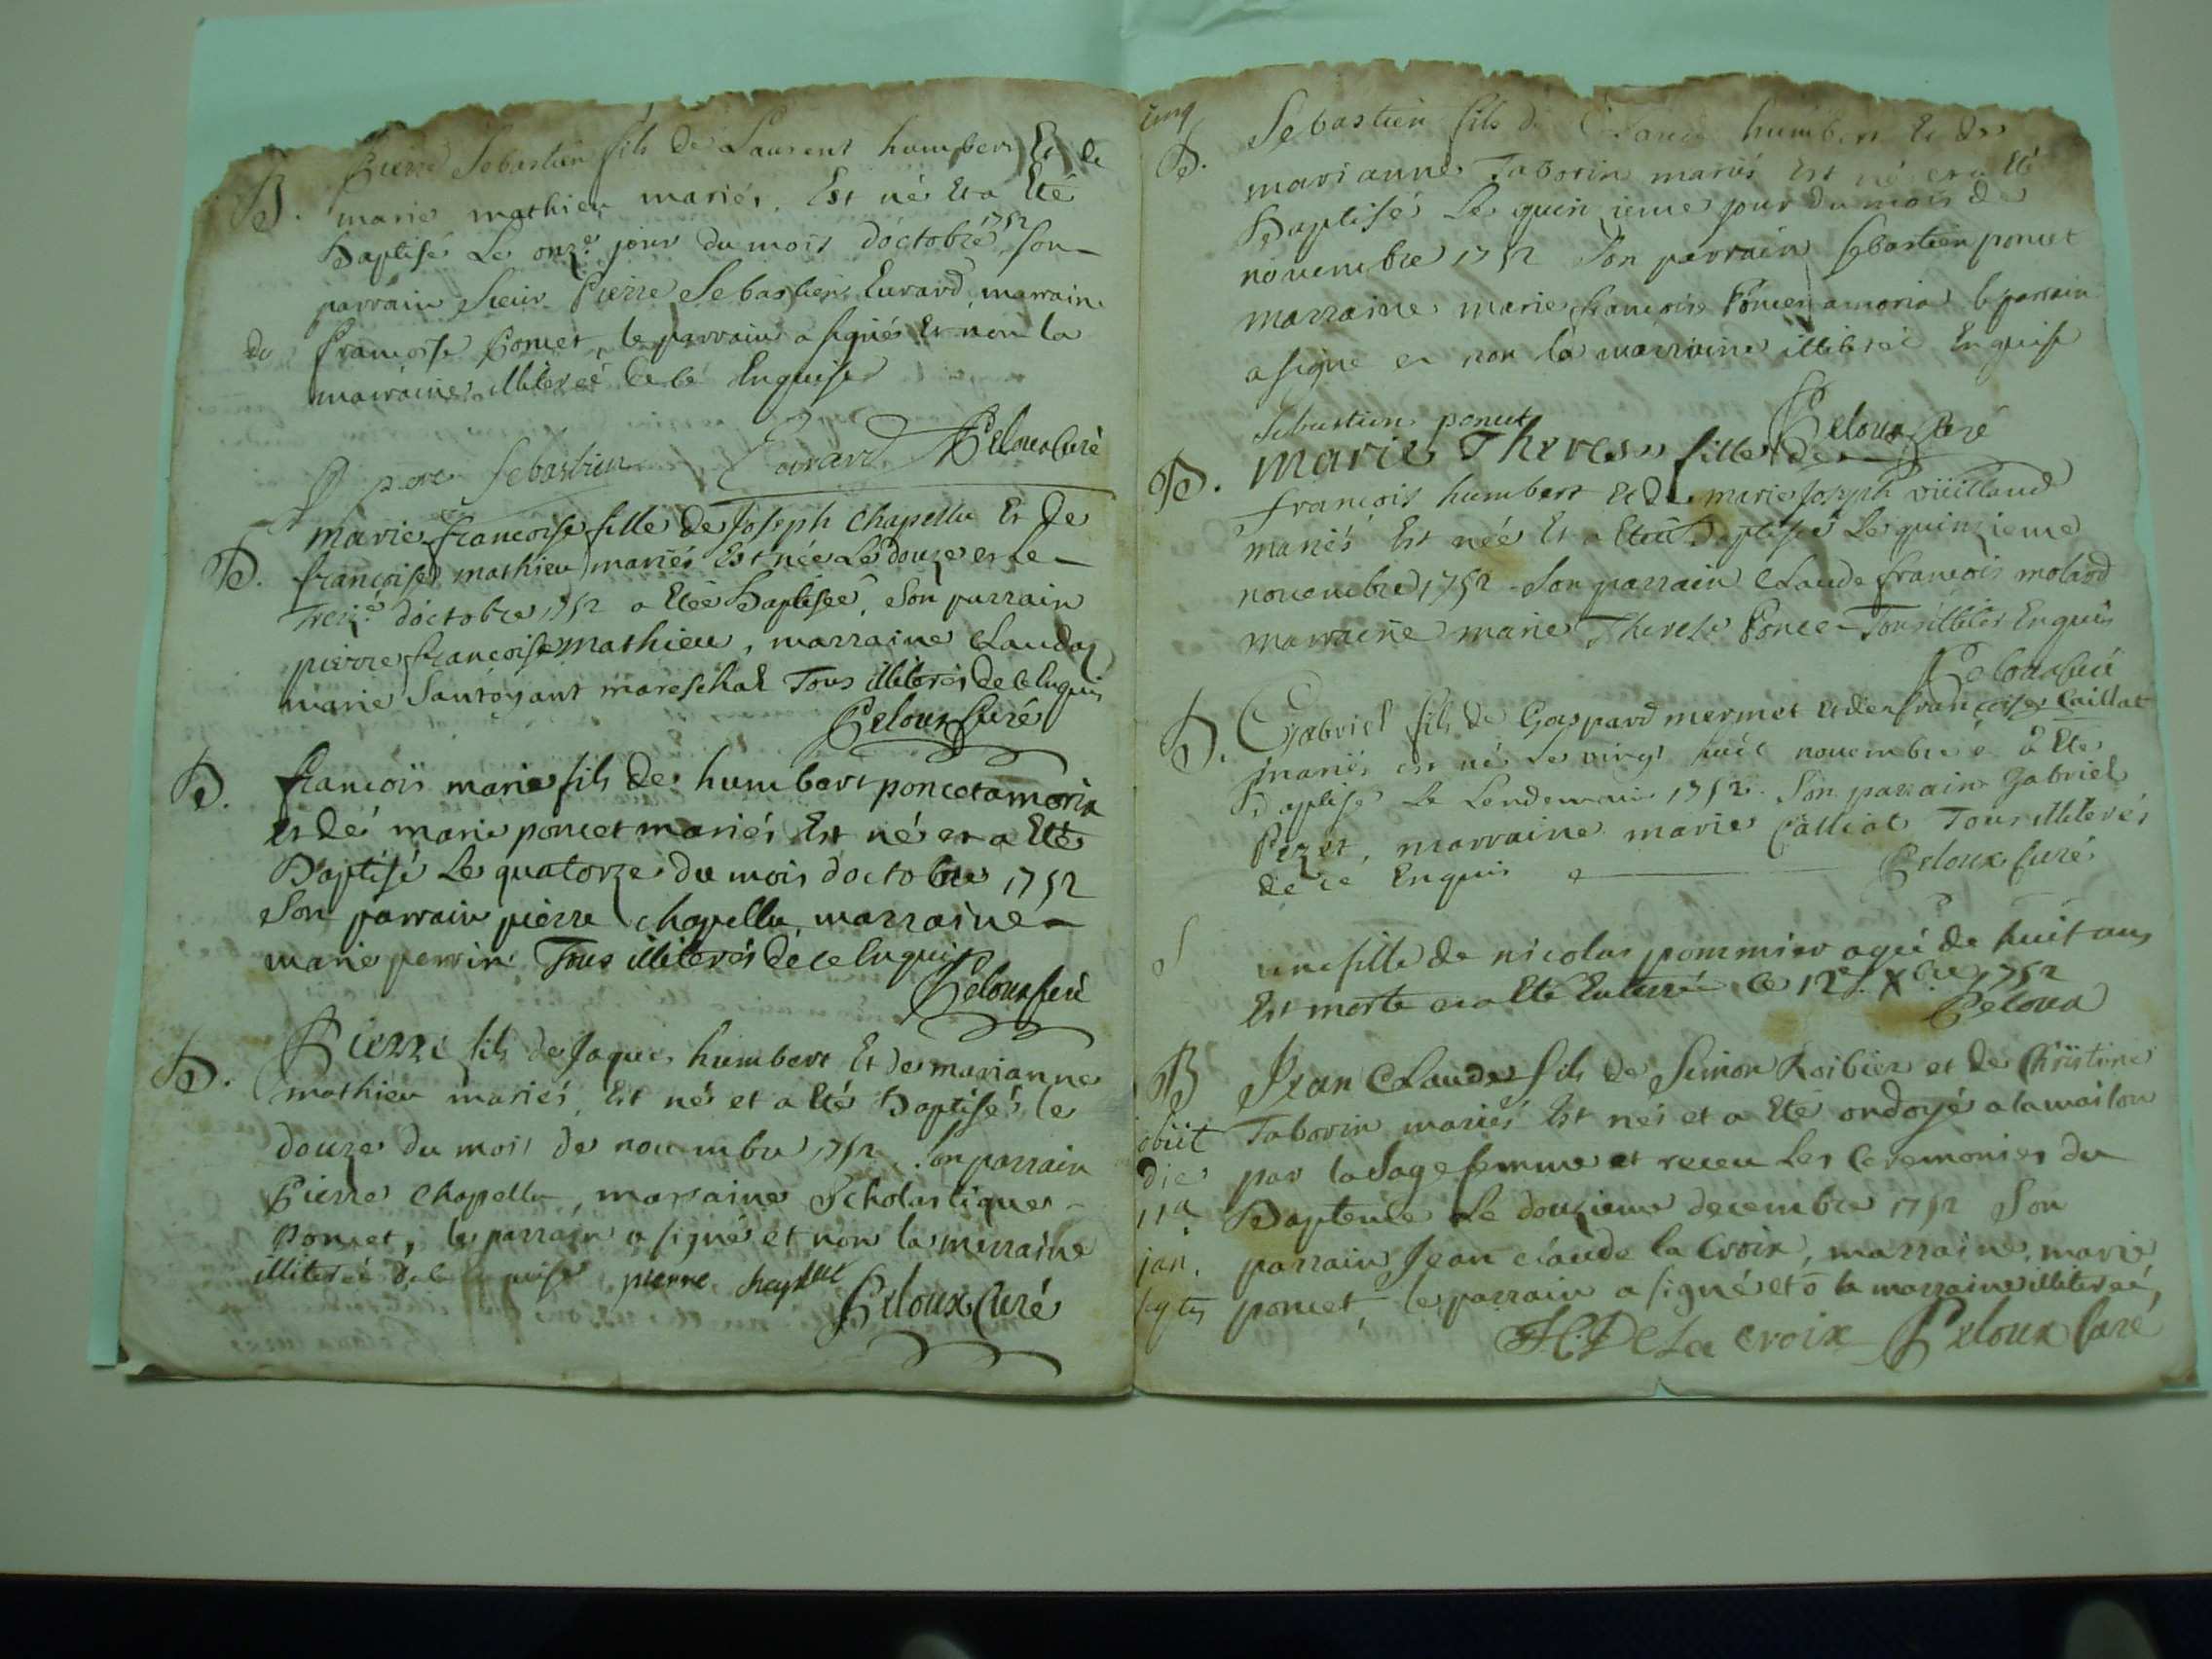 B. Pierre Sebastien fils de Laurent humbert Et de
marie mathieu mariés. Est né Et a Eté
Baptisé Le onz.e jour du mois d'octobre 1752 son
parrain Sieur Pierre Sebastien Evrard, marraine
françoise Poncet, le parrain a signé Et non la
marraine illiterée de ce Enquise
pere Sebastien Evrard Peloux Curé
B. marie françoise fille de Joseph Chapellu Et de
françoise mathieu mariés Est née Le douze et Le
Treiz.e d'octobre 1752 a Etée Baptisée, Son parrain
pierre françoise mathieu, marraine Clauda
marie Santoyant mareschal Tous illiterés de ce Enquis
Peloux Curé
B. François marie fils de humbert poncet amoria
et de marie poncet mariés Est né et a Eté
Baptisé Le quatorze du mois d'octobre 1752
Son parrain pierre Chapellu, marraine
marie perrin Tous illiterés de ce Enquis
Peloux Curé
B. Pierre fils de Jaques humbert Et de marianne
mathieu mariés, Est né et a Eté Baptisé le
douze du mois de novembre 1752, Son parrain
Pierre Chapellu, marraine Scholastique
Poncet, le parrain a signé et non la marraine
illiterée de ce Enquise pierre
Peloux Curé
cinq
B. Sebastien fils de Claude humbert Et de
marianne Taborin mariés Est né et a Eté
Baptisé Le quinzieme jour du mois de
novembre 1752 Son parrain Sebastien poncet
marraine marie françoise Poncet amoria le parrain
a signé et non la marraine illiterée Enquise
Sebastien poncet Peloux Curé
B. Marie Therese fille de
françois humbert Et de marie Joseph vüilland
mariés Est née Et a Eté Baptisée Le quinzieme
novembre 1752 Son parrain Claude françois molard
marraine marie Therese Ponce Tous illiterés Enquis
Peloux Curé
B. Gabriel fils de Gaspard mermet et de françoise Caillat
mariés est né Le vingt huit novembre et a Eté
Baptisé Le Lendemain 1752. Son parrain Gabriel
Perret, marraine marie Calliat Tous illiterés
de ce Enquis Peloux Curé
S une fille de nicolas pommier ageé de huit ans
Est morte et a Eté Enterrée le 12e Xbre 1752
Peloux
B Jean Claude fils de Simon Roibier et de Christine
obiit Taborin mariés Est né et a Eté ondoyé a la maison
die par la Sage femme et receu Les Ceremonies du
11a Bapteme Le douzieme decembre 1752 Son
jan. parrain Jean claude la Croix, marraine, marie
poncet, le parrain a signé et õ la marraine illiterée,
De La Croix Peloux Curé